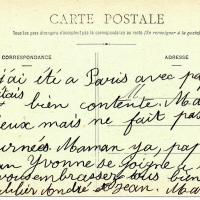 CARTE POSTALE
Tous les pays étrangers n'acceptent pas la correspondance au recto (Se renseigner à la poste)
CORRESPONDANCE
ADRESSE
j'ai été a Paris avec pa
étais
bien contente. Ma
eux mais ne fait pas
urnées. Maman ya, pap
an Yvonne se soigne
vous embrassez tous bien
André et Jean. Ma